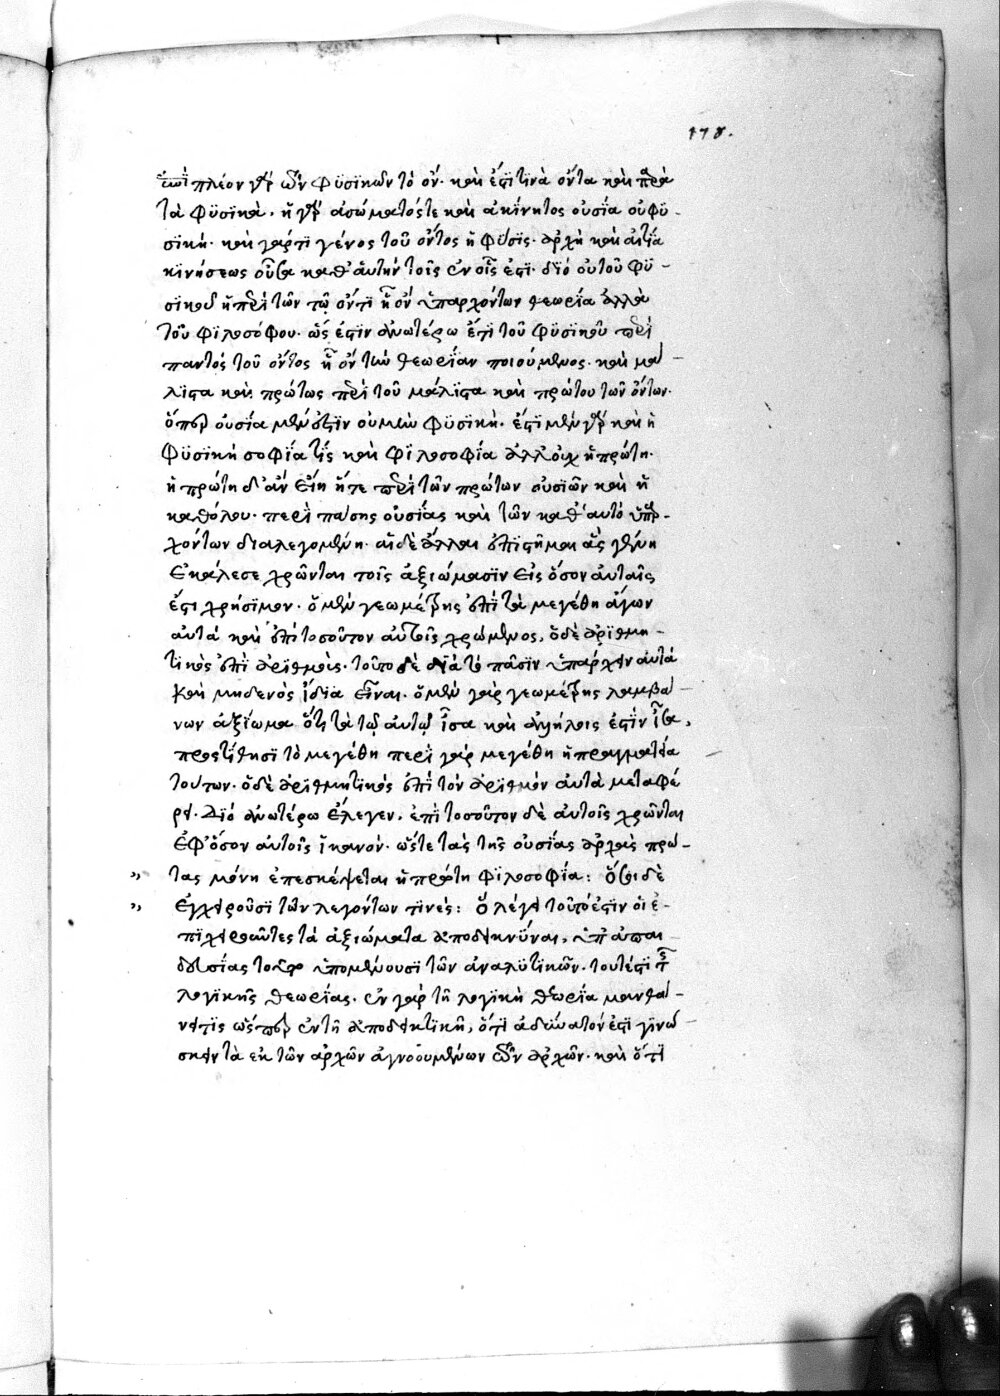 178.
ἐπὶ πλέον γὰρ τῶν φυσικῶν τὸ ὄν. καὶ ἔστι τινὰ ὄντα καὶ παρὰ
τὰ φυσικά. ἡ γὰρ ἀσώματός τε καὶ ἀκίνητος οὐσία οὐ φυ-
σική. καὶ γάρ τι γένος τοῦ ὄντος ἡ φύσις. ἀρχὴ καὶ αἰτία
κινήσεως οὖσα καθ' αὑτὴν τοῖς ἐν οἷς ἐστι. διὸ οὐ τοῦ φυ-
σικοῦ ἡ περὶ τῶν τῷ ὄντι ᾗ ὂν ὑπαρχόντων θεωρία ἀλλὰ
τοῦ φιλοσόφου. ὅς ἐστιν ἀνωτέρω ἔτι τοῦ φυσικοῦ περὶ
παντὸς τοῦ ὄντος ᾗ ὂν τὴν θεωρίαν ποιούμενος. καὶ μά-
λιστα καὶ πρώτως περὶ τοῦ μάλιστα καὶ πρώτου τῶν ὄντων.
ὅπερ οὐσία μέν ἐστιν οὐ μὴν φυσική. ἔστι μὲν γὰρ καὶ ἡ
φυσικὴ σοφία τὶς καὶ φιλοσοφία ἀλλ' οὐχ ἡ πρώτη.
ἡ πρώτη δ' ἂν εἴη ἥ τε περὶ τῶν πρώτων οὐσιῶν καὶ ἡ
καθόλου. περὶ πάσης οὐσίας καὶ τῶν καθ' αὑτὸ ὑπαρ-
χόντων διαλεγομένη. αἱ δὲ ἄλλαι ἐπιστῆμαι ἃς γένη
ἐκάλεσε χρῶνται τοῖς ἀξιώμασιν εἰς ὅσον αὐταῖς
ἐστι χρήσιμον. ὁ μὲν γεωμέτρης ἐπὶ τὰ μεγέθη ἄγων
αὐτὰ καὶ ἐπὶ τοσοῦτον αὐτοῖς χρώμενος, ὁ δὲ ἀριθμη-
τικὸς ἐπὶ ἀριθμοῖς. τοῦτο δὲ διὰ τὸ πᾶσιν ὑπάρχειν αὐτὰ
καὶ μηδενὸς ἴδια εἶναι. ὁ μὲν γὰρ γεωμέτρης λαμβά-
νων ἀξίωμα ὅτι τὰ τῷ αὐτῷ ἴσα καὶ ἀλλήλοις ἐστὶν ἴσα,
προστίθησι τὸ μεγέθη περὶ γὰρ μεγέθη ἡ πραγματεία
τούτων. ὁ δὲ ἀριθμητικὸς ἐπὶ τὸν ἀριθμὸν αὐτὰ μεταφέ
ρει. διὸ ἀνωτέρω ἔλεγεν, ἐπὶ τοσοῦτον δὲ αὐτοῖς χρῶνται
ἐφ' ὅσον αὐτοῖς ἱκανόν. ὥστε τὰς τῆς οὐσίας ἀρχὰς πρώ-
„ τας μόνη ἐπεσκέψεται ἡ πρώτη φιλοσοφία: ὅσοι δὲ
„ ἐγχειροῦσι τῶν λεγόντων τινές: ὃ λέγει τοῦτό ἐστιν οἱ ἐ-
πιχειροῦντες τὰ ἀξιώματα ἀποδεικνύναι, ὑπ' ἀπαι
δευσίας τοῦτο ὑπομένουσι τῶν ἀναλυτικῶν. τουτέστι τῆς
λογικῆς θεωρίας. ἐν γὰρ τῇ λογικῇ θεωρίᾳ μανθά-
νει τις ὥσπερ ἐν τῇ ἀποδεικτικῇ, ὅτι ἀδύνατόν ἐστι γινώ-
σκειν τὰ ἐκ τῶν ἀρχῶν ἀγνοουμένων τῶν ἀρχῶν. καὶ ὅτι